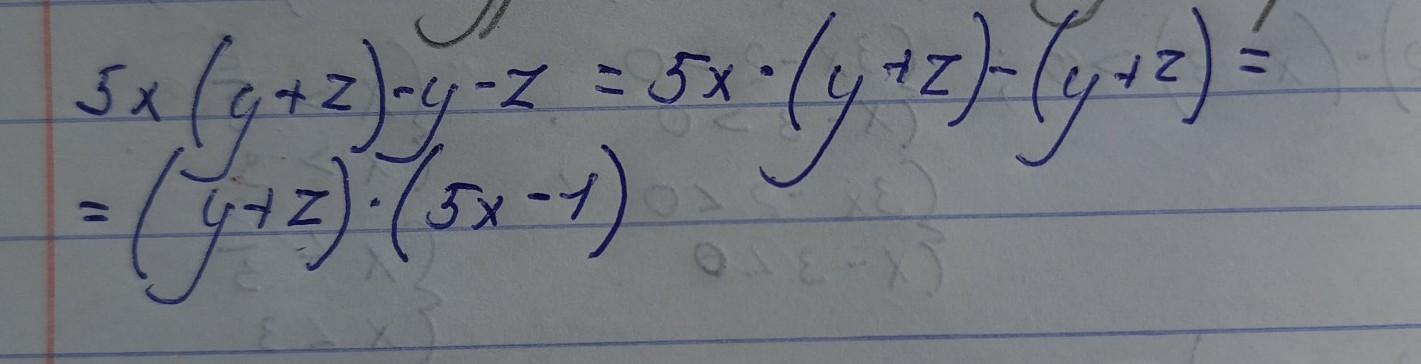 5x(y+z)-y-z = 5x·(y+z)-(y+z)=
=(y+z)·(5x-1)